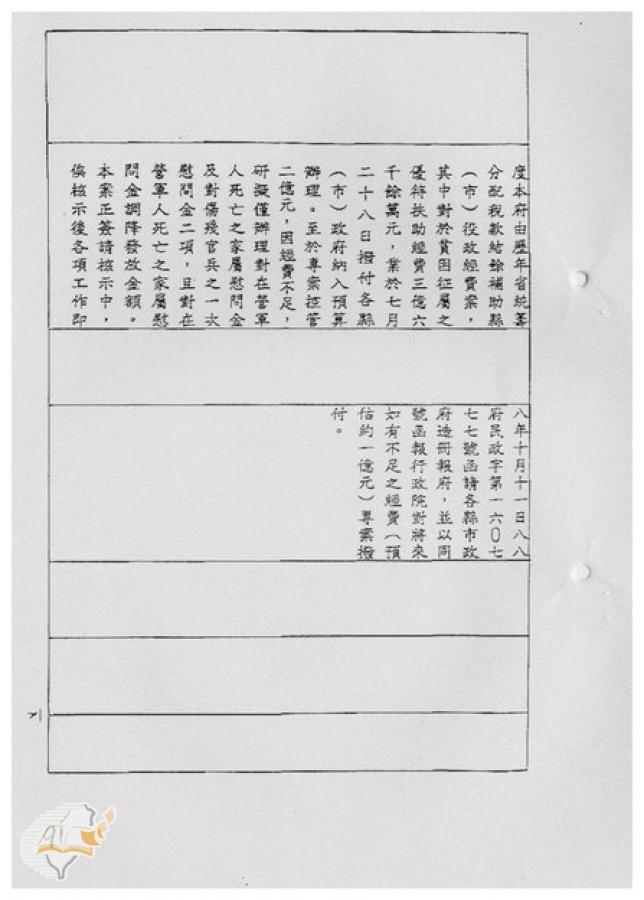 度本府由歷年省統籌
分配稅款結餘補助縣
（市）役政經費案，
其中對於貧困征屬之
優待扶助經費三億六
千餘萬元，業於七月
二十八日撥付各縣
（市）政府納入預算
辦理。至於專案控管
二億元，因經費不足，
研擬僅辦理對在營軍
人死亡之家屬慰問金
及對傷殘官兵之一次
慰問金二項，且對在
營軍人死亡之家屬慰
問金調降發放金額。
本案正簽請核示中，
俟核示後各項工作即
八年十月十一日八八
府民政字第一六０七
七七號函請各縣市政
府造冊報府，並以同
號函報行政院對將來
如有不足之經費（預
估約一億元）專案撥
付。